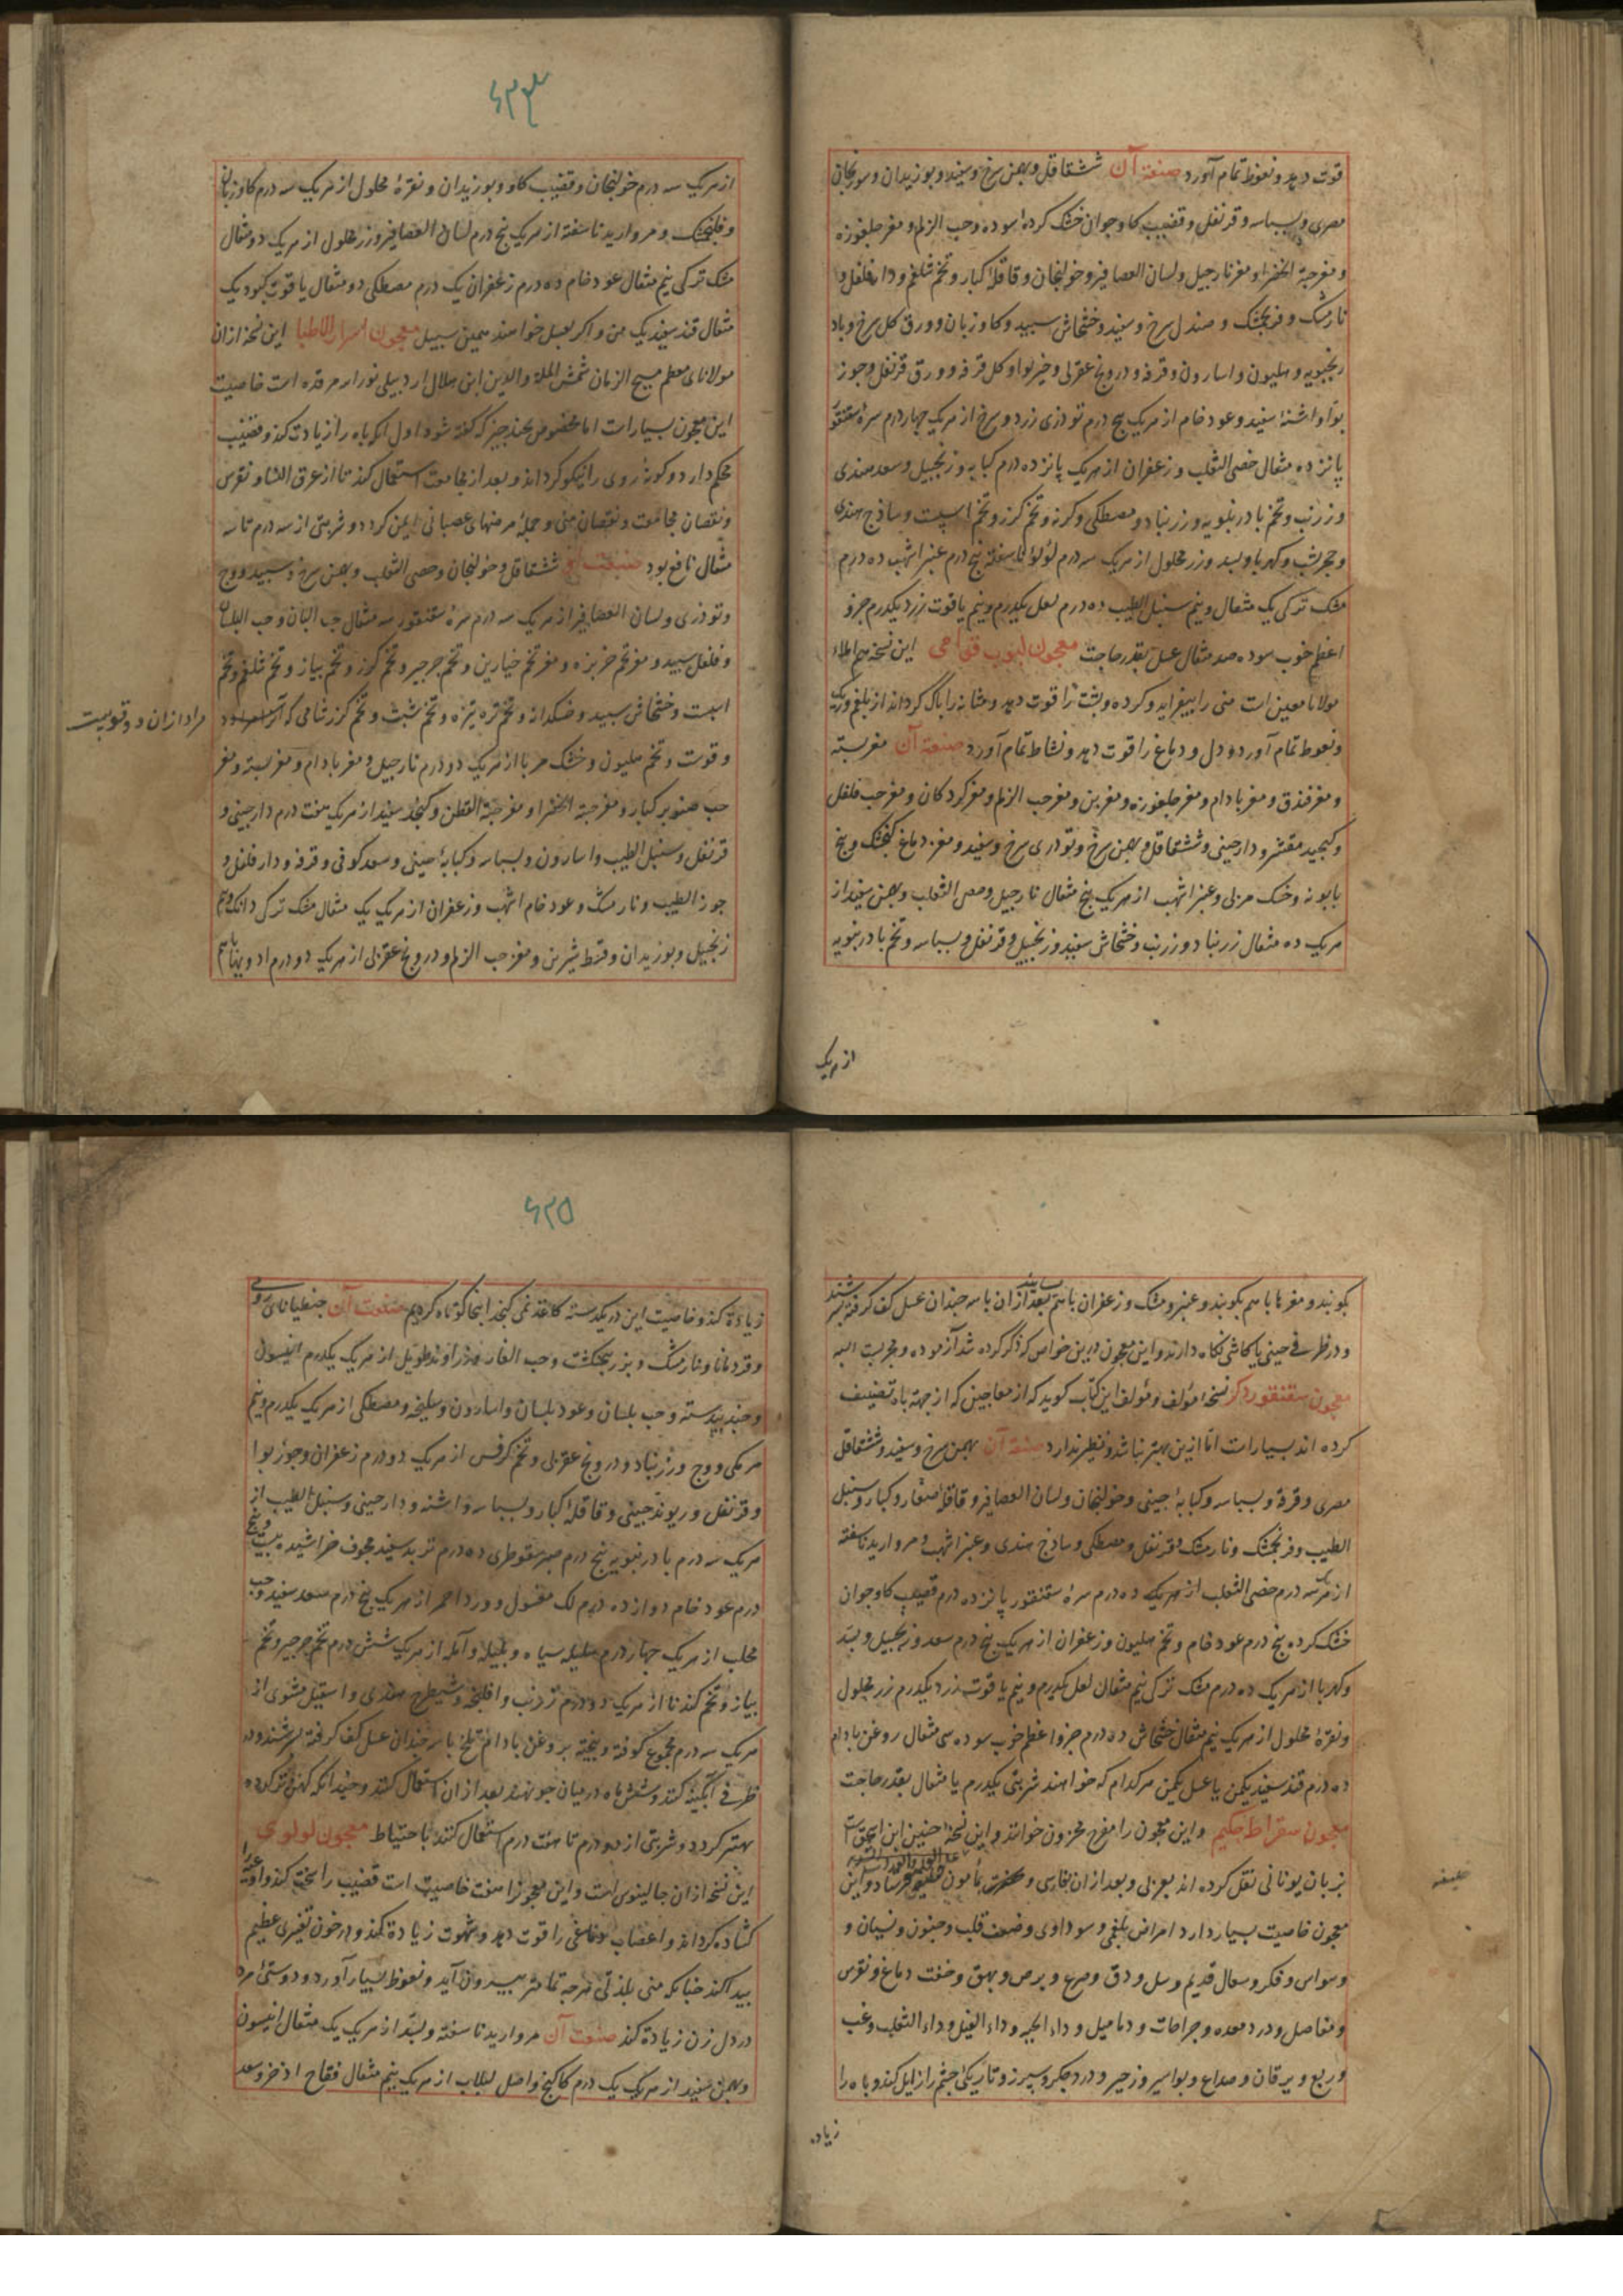 قوت دهد و نعوظ تمام آورد صنعة آن ششقاقل و بهمن سرخ و سفید و بوزیدان و سورنجان
مصری و بسباسه و قرنفل و قضیب کاو جوان خشک کرده سوده و حب الزلم و مغز جلغوزه
و مغز حبة الخضرا و مغز نارجیل و لسان العصافیر و خولنجان و قاقلهٔ کبار و تخم شلغم و دارفلفل و
نارمشک و فرنجمشک و صندل سرخ و سفید و خشخاش سبید و کاوزبان و ورق کل سرخ و باد
رنجبویه و هلیون و اسارون و قرفه و درونج عقربی و خیربوا و کل قرفه و ورق قرنفل و جوز
بوا و اشنهٔ سفید و عود خام از هریک پنج درم تودری زرد و سرخ از هریک چهار درم سرهٔ سقنقور
پانزده مثقال خصی الثعلب و زعفران از هریک پانزده درم کبابه و زنجبیل و سعد هندی
و زرنب و تخم بادرنبویه و زرنباد و مصطکی و کرنه و تخم کرز و تخم اسپست و ساذج هندی
و حجر یشب و کهربا و بسد و زر محلول از هریک سه درم لؤلؤ ناسفته پنج درم عنبر اشهب ده درم
مشک ترکی یک مثقال و نیم سنبل الطیب ده درم لعل یکدرم و نیم یاقوت زرد یکدرم جزو
اعظم خوب سوده صد مثقال عسل بقدر حاجت معجون لبوب این نسخه هم املاء
مولانا معین است منی را بیفزاید و کرده و پشت را قوت دهد و مثانه را پاک کرداند از بلغم و ریک
و نعوظ تمام آورد و دل و دماغ را قوت دهد و نشاط تمام آورد صنعة آن مغز پسته
و مغز فندق و مغز بادام و مغز جلغوزه و مغز بن و مغز حب الزلم و مغز کردکان و مغز حب فلفل
و کنجید مقشر و دارچینی و ششقاقل و بهمن سرخ و تودری سرخ و سفید و مغز دماغ کنجشک و بیخ
بابونه و خسک مربی و عنبر اشهب از هریک پنج مثقال نارجیل و خصی الثعلب و بهمن سفید از
هریک ده مثقال زرنباد و زرنب و خشخاش سفید و زنجبیل و قرنفل و بسباسه و تخم بادرنبویه
از هریک
۶۲۴
از هریک سه درم خولنجان و قضیب کاو و بوزیدان و نقرهٔ محلول از هریک سه درم کاوزبان
و فلنجمشک و مروارید ناسفته از هریک پنج درم لسان العصافیر و زر محلول از هریک دو مثقال
مشک ترکی نیم مثقال عود خام ده درم زعفران یک درم مصطکی دو مثقال یاقوت کبود یک
مثقال قند سفید یک من و اکر بعسل خواهند همین سبیل معجون اسرار الاطبا این نسخه ازان
مولانای معظم مسیح الزمان شمس الملة والدین ابن هلال اردبیلی نور الله مرقده است خاصیت
این معجون بسیارست اما مخصوص بچند چیز که کفته شود اول آنکه باه را زیادت کند و قضیب
محکم دارد و کونهٔ روی را نیکو کرداند و بعد از مجامعت استعمال کند تا از عرق النسا و نقرس
و نقصان مجامعت و نقصان منی و جملهٔ مرضهای عصبانی ایمن کردد و شربتی از سه درم تا سه
مثقال نافع بود صنعت آن ششقاقل و خولنجان و خصی الثعلب و بهمن سرخ و سبید و وج
و تودری و لسان العصافیر از هریک سه درم سرهٔ سقنقور سه مثقال حب البان و حب البلسان
و فلفل سبید و مغز تخم خربزه و مغز تخم خیارین و تخم جرجیر و تخم کرز و تخم بیاز و تخم شلغم و تخم
اسبست و خشخاش سبید و خسکدانه و تخم تره تیزه و تخم شبت و تخم کزر شامی که
مراد ازان دوقو است
و قوت و تخم هلیون و خسک مربا از هریک دو درم نارجیل و مغز بادام و مغز بسته و مغز
حب صنوبر کبار و مغز حبة الخضرا و مغز حبة القطن و کنجد سفید از هریک هفت درم دارچینی و
قرنفل و سنبل الطیب و اسارون و بسباسه و کبابهٔ صینی و سعد کوفی و قرفه و دارفلفل و
جوز الطیب و نارمشک و عود خام اشهب و زعفران از هریک یک مثقال مشک ترکی دانک و نیم
زنجبیل و بوزیدان و قسط شیرین و مغز حب الزلم و درونج عقربی از هریک دو درم ادویها باهم
بکوبند و مغزها باهم بکوبند و عنبر و مشک و زعفران باهم بسایند بعد ازان با سه چندان عسل کف کرفته بسرشند
و در ظرف چینی یا کاشی نکاه دارند و این معجون درین خواص که ذکر کرده شد آزموده و مجربست البته
معجون سقنقور ذکر نسخهٔ مؤلف و مؤلف این کتاب کوید که از معاجین که از جهة باه تصنیف
کرده اند بسیارست اما ازین بهتر نباشد و نظیر ندارد صنعة آن بهمن سرخ و سفید و ششقاقل
مصری و قرفه و بسباسه و کبابهٔ چینی و خولنجان و لسان العصافیر و قاقلهٔ صغار و کبار و سنبل
الطیب و فرنجمشک و نارمشک و قرنفل و مصطکی و ساذج هندی و عنبر اشهب و مروارید ناسفته
از هریک سه درم خصی الثعلب از هریک ده درم سرهٔ سقنقور پانزده درم قضیب کاو جوان
خشک کرده پنج درم عود خام و تخم هلیون و زعفران از هریک پنج درم سعد و زنجبیل و بسد
و کهربا از هریک ده درم مشک ترکی نیم مثقال لعل یکدرم و نیم یاقوت زرد یکدرم زر محلول
و نقرهٔ محلول از هریک نیم مثقال خشخاش ده درم جزو اعظم خوب سوده سی مثقال روغن بادام
ده درم قند سفید یکمن یا عسل یکمن هرکدام که خواهند شربتی یکدرم یا مثقال بقدر حاجت
معجون سقراط حکیم و این معجون را مفرح محزون خوانند و این نسخه حنین ابن اسحق است
بزبان یونانی نقل کرده اند بعربی و بعد ازان بفارسی و مأمون خلیفه فرستاد و این
خلیفه
معجون خاصیت بسیار دارد امراض بلغمی و سوداوی و ضعف قلب و جنون و نسیان و
وسواس و فکر و سعال قدیم و سل و دق و صرع و برص و بهق و ضعف دماغ و نقرس
و مفاصل و درد معده و جراحات و دمامیل و داء الحیه و داء الفیل و داء الثعلب و غب
و ربع و یرقان و صداع و بواسیر و زحیر و درد جکر و سپرز و تاریکی چشم را زایل کند و باه را
زیاده
۶۲۵
زیادة کند و خاصیت این در یکدسته کاغذ نمی کنجد اینجا کوتاه کردیم صنعت آن جنطیانای رومی
و قردمانا و نارمشک و بزر بنجنکشت و حب الغار و زراوند طویل از هریک یکدرم انیسون
و جندبیدسته و حب بلسان و عود بلسان و اسارون و سلیخه و مصطکی از هریک یکدرم و نیم
مرمکی و وج و زرنباد و درونج عقربی و تخم کرفس از هریک دو درم زعفران و جوز بوا
و قرنفل و ریوند چینی و قاقلهٔ کبار و بسباسه و اشنه و دارچینی و سنبل الطیب از
هریک سه درم بادرنبویه پنج درم صبر سقوطری ده درم تربد سفید مجوف خراشیده بیست و پنج
درم عود خام دوازده درم لک مغسول و ورد احمر از هریک پنج درم سعد سفید و حب
محلب از هریک چهار درم هلیله سیاه و بلیله و آمله از هریک شش درم تخم جرجیر و تخم
بیاز و تخم کندنا از هریک دو درم زرنب و افلنجه و شیطرج هندی و اسقیل مشوی از
هریک سه درم مجموع کوفته و بیخته بروغن بادام تلخ با سه چندان عسل کف کرفته بسرشند و در
ظرف آبکینه کنند و شش ماه در میان جو نهند بعد ازان استعمال کنند و چندانکه کهن تر کردد
بهتر کردد و شربتی از دو درم تا هفت درم استعمال کنند با احتیاط معجون لولوی
این نسخه ازان جالینوس است و این معجونرا هفت خاصیت است قضیب را سخت کند و اوعیه
کشاده کرداند و اعصاب دماغی را قوت دهد و شهوت زیادة کند و در خون تغیری عظیم
بیدا کند چنانکه منی بلذتی هرچه تمامتر بیرون آید و نعوظ بسیار آورد و دوستی مرد
در دل زن زیادة کند صنعت آن مروارید ناسفته و بسد از هریک یک مثقال انیسون
و بهمن سفید از هریک یک درم کاکنج و اصل لبلاب از هریک نیم مثقال فقاح اذخر و سعد